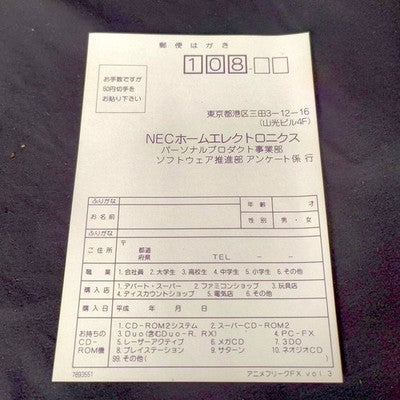 郵便はがき
108-
お手数ですが
50円切手を
お貼り下さい
東京都港区三田3-12-16
(山光ビル4F)
NECホームエレクトロニクス
パーソナルプロダクト事業部
ソフトウェア推進部 アンケート係 行
ふりがな
お名前
年齢 才
性別 男・女
ふりがな
ご住所 〒 都道府県 TEL - -
職業 1.会社員 2.大学生 3.高校生 4.中学生 5.小学生 6.その他
購入店 1.デパート・スーパー 2.ファミコンショップ 3.玩具店
4.ディスカウントショップ 5.電気店 6.その他
購入日 平成 年 月 日
お持ちのCD-ROM機 1.CD-ROM2システム 2.スーパーCD-ROM2
3.Duo(含むDuo-R, RX) 4.PC-FX
5.レーザーアクティブ 6.メガCD 7.3DO
8.プレイステーション 9.サターン 10.ネオジオCD
99.その他( )
7893551
アニメフリークFX vol.3